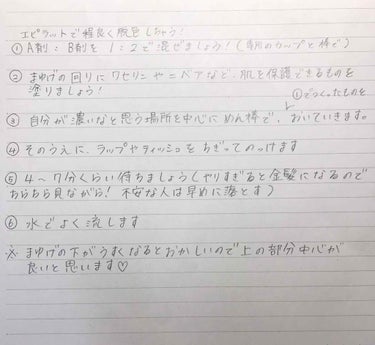 エピラットで程良く脱色しちゃう!
① A剤:B剤を1:2で混ぜましょう!(専用のカップと棒で)
② まゆげの回りにワセリンやニベアなど、肌を保護できるものを
塗りましょう!
①でつくったものを
③ 自分が濃いなと思う場所を中心にめん棒で、おいていきます。
④ そのうえに、ラップやティッシュをちぎってのっけます
⑤ 4〜7分くらい待ちましょう(やりすぎると金髪になるので
ちらちら見ながら! 不安な人は早めに落とす)
⑥ 水でよく流します
※ まゆげの下がうすくなるとおかしいので上の部分中心が
良いと思います♡